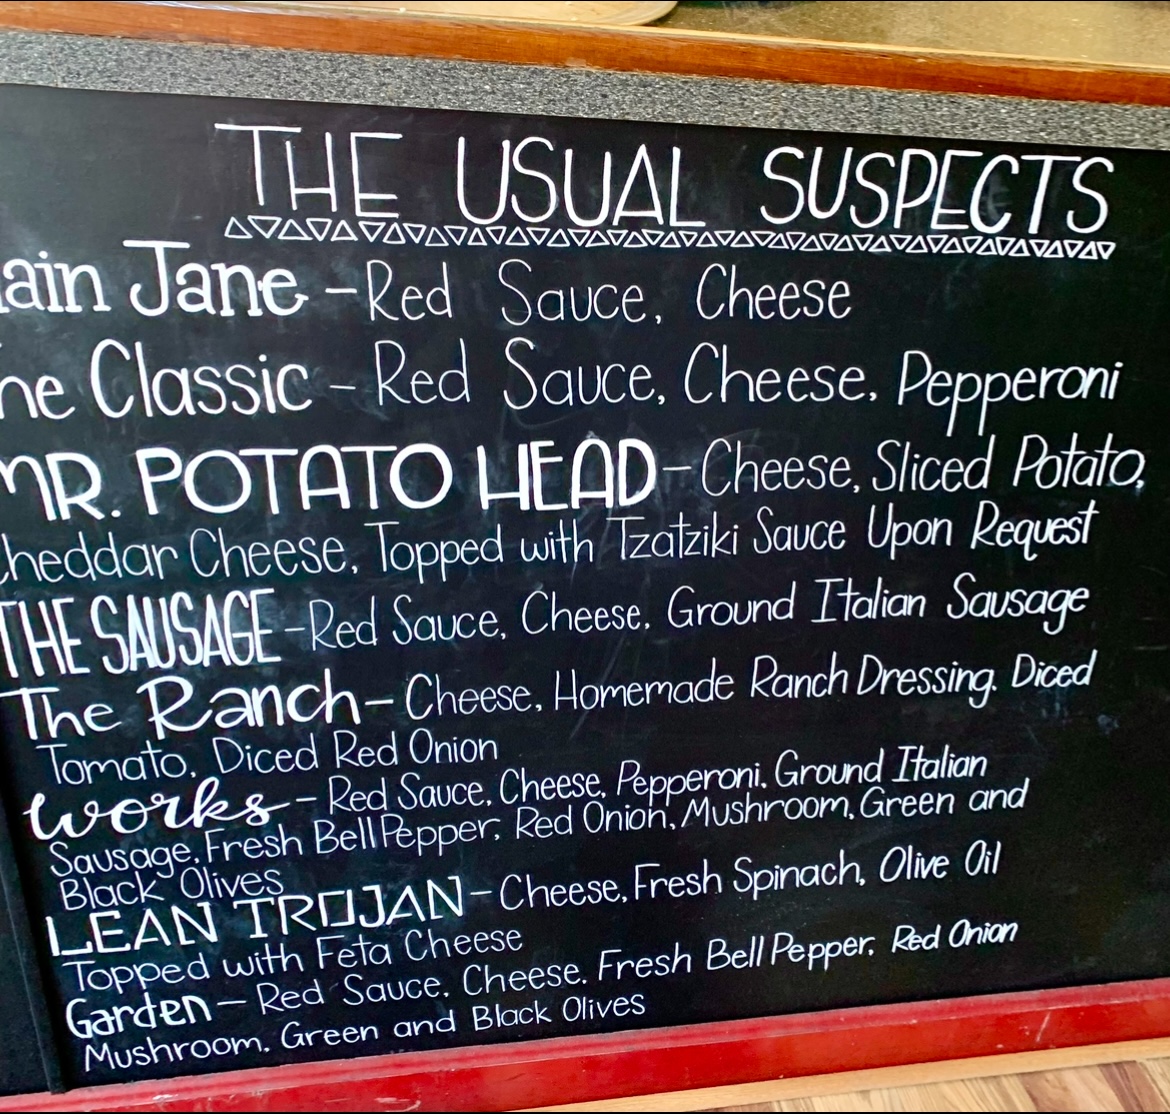 THE USUAL SUSPECTS
lain Jane - Red Sauce, Cheese
he Classic - Red Sauce, Cheese, Pepperoni
MR. POTATO HEAD - Cheese, Sliced Potato,
Cheddar Cheese, Topped with Tzatziki Sauce Upon Request
THE SAUSAGE - Red Sauce, Cheese, Ground Italian Sausage
The Ranch - Cheese, Homemade Ranch Dressing, Diced
Tomato, Diced Red Onion
Works - Red Sauce, Cheese, Pepperoni, Ground Italian
Sausage, Fresh Bell Pepper, Red Onion, Mushroom, Green and
Black Olives
LEAN TROJAN - Cheese, Fresh Spinach, Olive Oil
Topped with Feta Cheese
Garden - Red Sauce, Cheese, Fresh Bell Pepper, Red Onion
Mushroom, Green and Black Olives